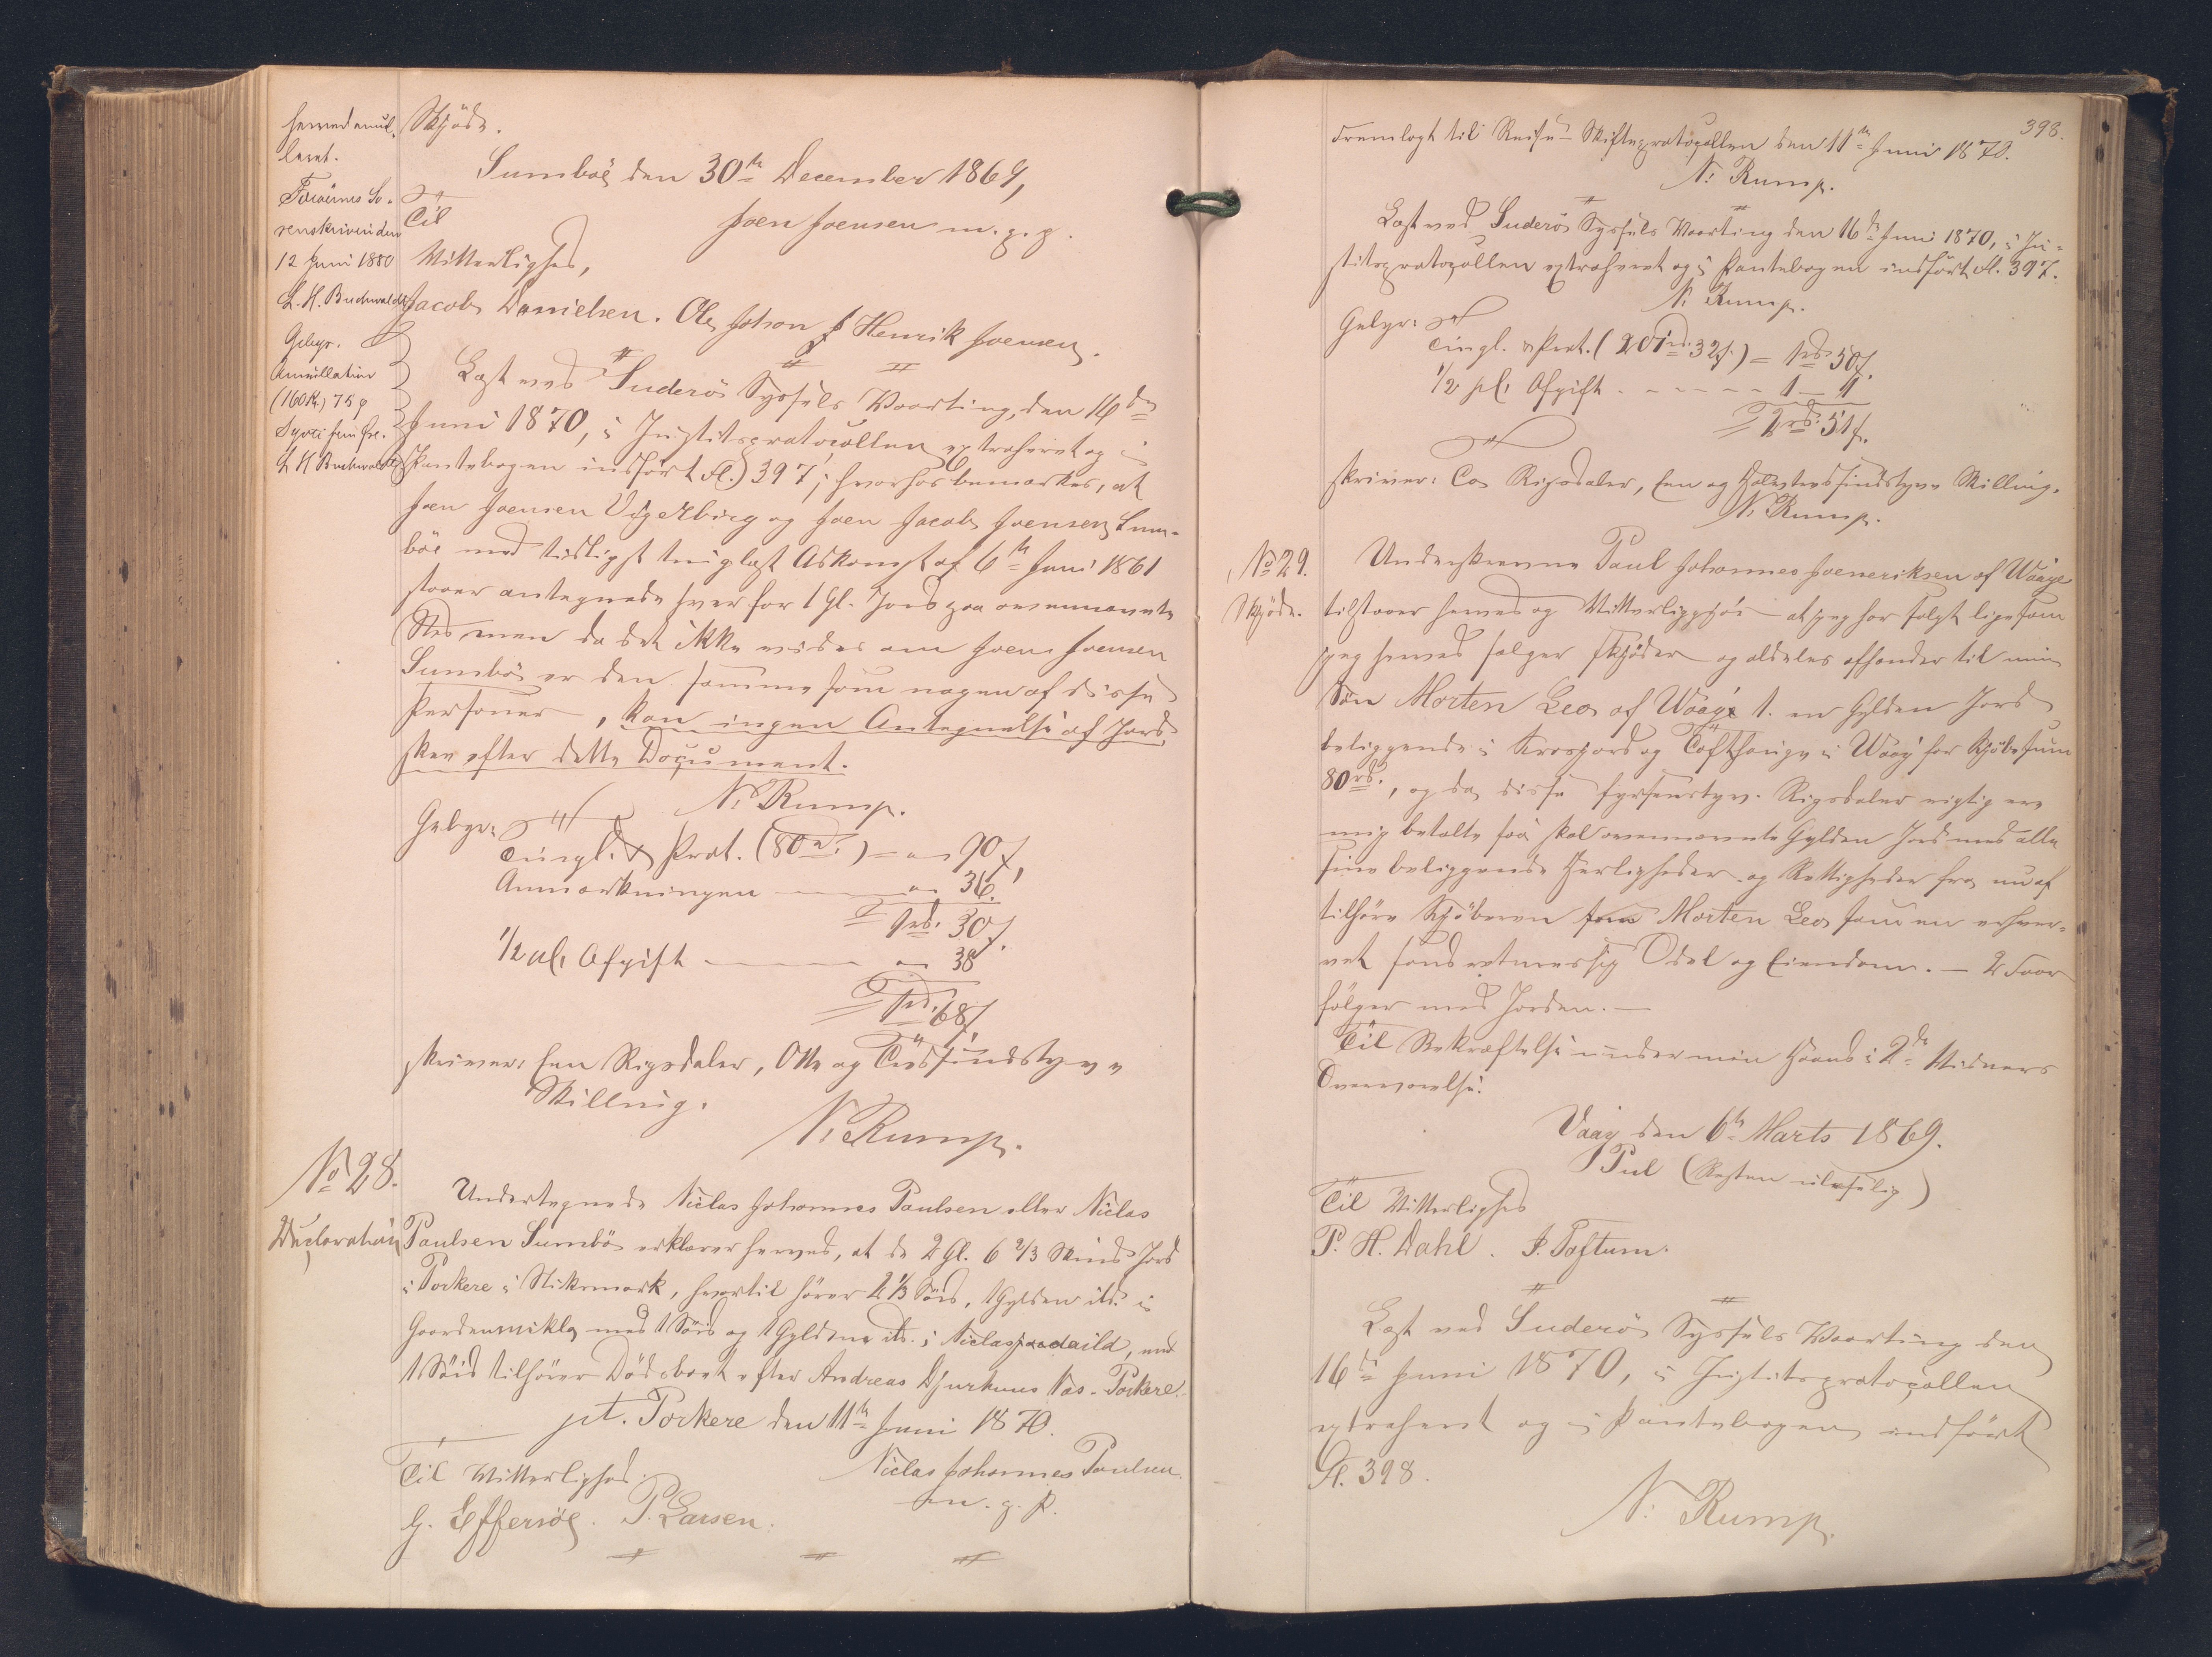 herved annul-
leret.
Færøernes So-
renskriveri den
12 Juni 1880
L. H. Buchwaldt
Gebyr.
Annullation
(160 Kr.) 75 ø
Syvti fem Øre.
L H Buchwaldt
Skjøde.
Sumbøe den 30te December 1869,
Joen Joensen m. p. p.
Til
Vitterlighed,
Jacob Danielsen. Ole Johson J Henrik Joensen.
Læst ved Suderø Syssels Vaarting, den 16de
Juni 1870, i Justitsprotocollen extraheret og i
Pantebogen indført fl. 397; hvorhos bemærkes, at
Joen Joensen Vigelbirg og Joen Jacob Joensen Sum-
bøe med tidligst tinglæst Adkomst af 6te Juni 1861
staaer antegnede hver for 1 Gl. Jord paa ovennævnte
Sted men da det ikke vides om Joen Joensen
Sumbø er den samme som nogen af disse
Personer, kan ingen Antegnelse af Jord
skee efter dette Document.
N. Rump.
Gebyr:
Tingl. & Prot. (80 rd.) = " 90 ʃ,
Anmærkningen " 36.
1 rd. 30 ʃ.
1/2 pCt. Afgift " 38
1 rd. 68 ʃ.
skriver: Een Rigsdaler, Otte og Tredsindstyve
Skilling.
N. Rump.
No 28.
Declaration
Undertegnede Niclas Johannes Paulsen eller Niclas
Paulsen Sumbø erklærer herved, at de 2 Gl. 6 2/3 Skind Jord
i Porkere i Stiksmark, hvortil hører 2 1/3 Søid, 1 Gylden ibd. i
Goordenmikla med 1 Søid og 1 Gylden ibd. i Niclasjoodaild, med
1 Søid tilhører Dødsboet efter Andreas Djurhuus Næs-Porkere.
pt. Porkere den 11te Juni 1870.
Niclas Johannes Paulsen
m. p. p.
Til Vitterlighed.
G. Effersöe. P. Larsen.
398.
Fremlagt til Reise-Skifteprotocollen den 11te Juni 1870.
N. Rump.
Læst ved Suderø Syssels Vaarting den 16de Juni 1870, i Ju-
stitsprotocollen extraheret og i Pantebogen indført fl. 397.
N. Rump.
Gebyr:
Tingl. & Prot. (201 rd. 32 ʃ.) = 1 rd. 50 ʃ.
1/2 pCt. Afgift 1 - 1
2 rd. 51 ʃ.
skriver: To Rigsdaler, Een og Halvtredsindstyve Skilling.
N. Rump.
No 29.
Skjøde.
Underskrevne Paul Johannes Joeneriksen af Waage
tilstaaer herved og Vitterliggjør at jeg har solgt ligesom
jeg herved sælger skjøder og aldeles afhænder til min
Søn Morten Leo af Waage 1. en Gylden Jord
beliggende i Krosgord og Tofthauge i Waag for Kjøbesum
80 rd., og da disse fyrsenstyve Rigsdaler rigtig ere
mig betalte saa skal ovennævnte Gylden Jord med alle
sine beliggende Herligheder og Rettigheder fra nu af
tilhøre Kjøberen som Morten Leo som en erhver-
vet sandretmessig Odel og Eiendom. — 2 Faar
følger med Jorden. —
Til Bekræftelse under min Haand i 2de Vidners
Overværelse.
Vaag den 6te Marts 1869.
Pul (Resten ulæselig)
Til Vitterlighed
P. H. Dahl. J. Toftum.
Læst ved Suderø Syssels Vaarting den
16de Juni 1870, i Justitsprotocollen
extraheret og i Pantebogen indført
Fl. 398.
N. Rump.